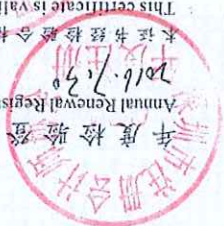 年度检验登
Annual Renewal Regis
2016.7.30
本证书经检验合格
This certificate is vali
市注册会计师